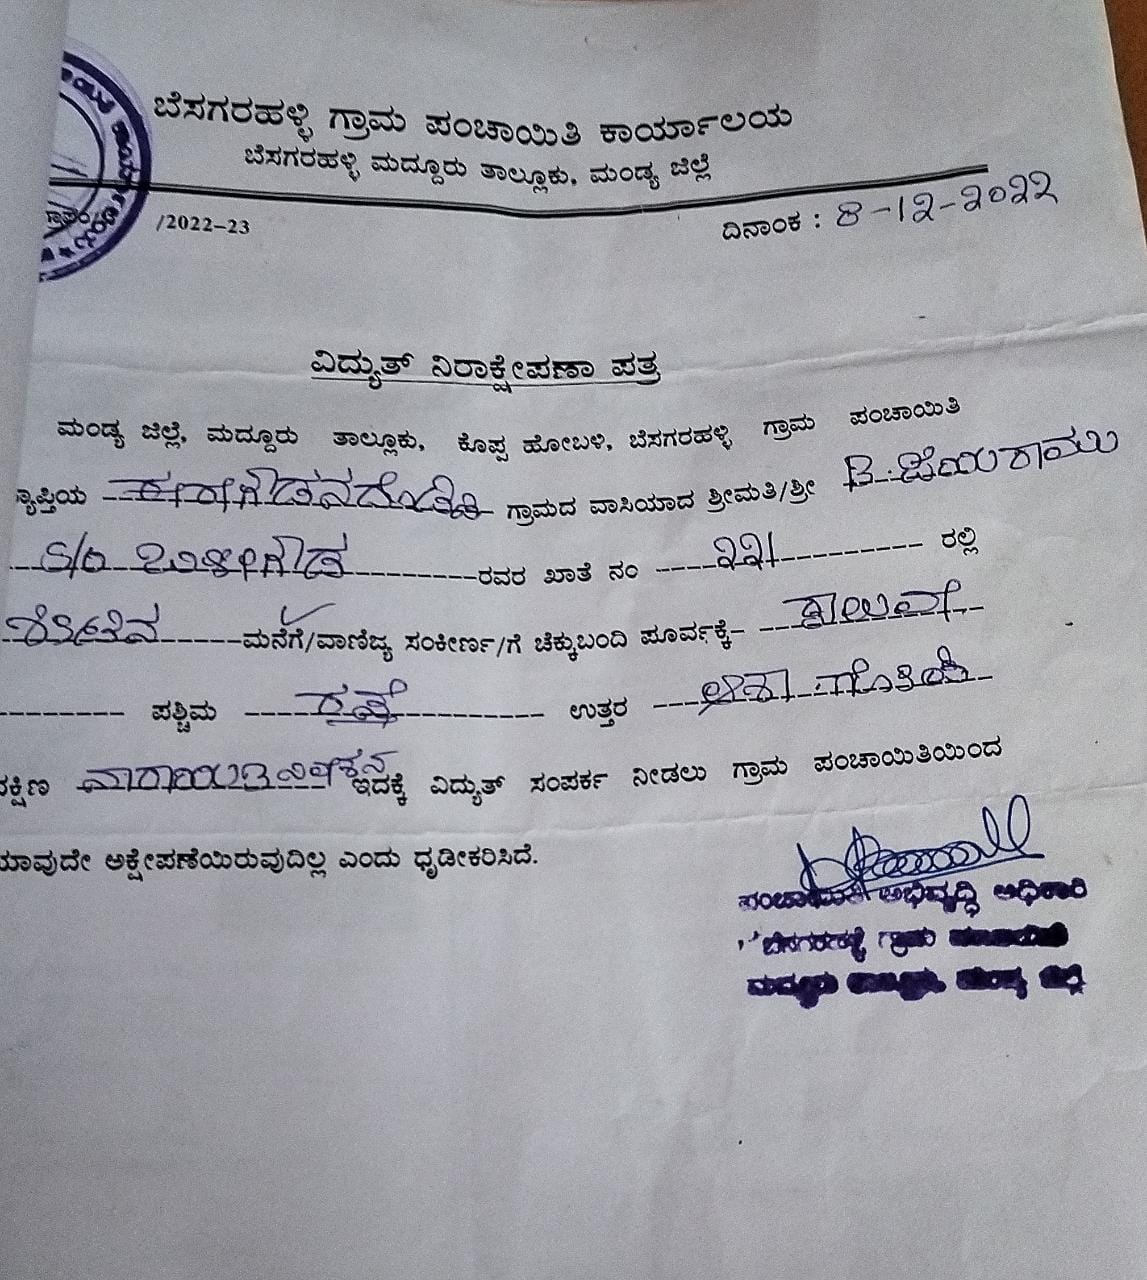 ಬೆಸಗರಹಳ್ಳಿ ಗ್ರಾಮ ಪಂಚಾಯಿತಿ ಕಾರ್ಯಾಲಯ
ಬೆಸಗರಹಳ್ಳಿ ಮದ್ದೂರು ತಾಲ್ಲೂಕು, ಮಂಡ್ಯ ಜಿಲ್ಲೆ
/2022-23 ದಿನಾಂಕ : 8-12-2022
ವಿದ್ಯುತ್ ನಿರಾಕ್ಷೇಪಣಾ ಪತ್ರ
ಮಂಡ್ಯ ಜಿಲ್ಲೆ, ಮದ್ದೂರು ತಾಲ್ಲೂಕು, ಕೊಪ್ಪ ಹೋಬಳಿ, ಬೆಸಗರಹಳ್ಳಿ ಗ್ರಾಮ ಪಂಚಾಯಿತಿ
ವ್ಯಾಪ್ತಿಯ ಗ್ರಾಮದ ವಾಸಿಯಾದ ಶ್ರೀಮತಿ/ಶ್ರೀ B. ಜಯರಾಮು
S/o ರವರ ಖಾತೆ ನಂ ೨೨೧ ರಲ್ಲಿ
ಮನೆಗೆ/ವಾಣಿಜ್ಯ ಸಂಕೀರ್ಣ/ಗೆ ಚೆಕ್ಕುಬಂದಿ ಪೂರ್ವಕ್ಕೆ- ಕಾಲುವೆ
ಪಶ್ಚಿಮ ರಸ್ತೆ ಉತ್ತರ
ದಕ್ಷಿಣ ಇದಕ್ಕೆ ವಿದ್ಯುತ್ ಸಂಪರ್ಕ ನೀಡಲು ಗ್ರಾಮ ಪಂಚಾಯಿತಿಯಿಂದ
ಯಾವುದೇ ಅಕ್ಷೇಪಣೆಯಿರುವುದಿಲ್ಲ ಎಂದು ಧೃಡೀಕರಿಸಿದೆ.
ಪಂಚಾಯಿತಿ ಅಭಿವೃದ್ಧಿ ಅಧಿಕಾರಿ
ಬೆಸಗರಹಳ್ಳಿ ಗ್ರಾಮ